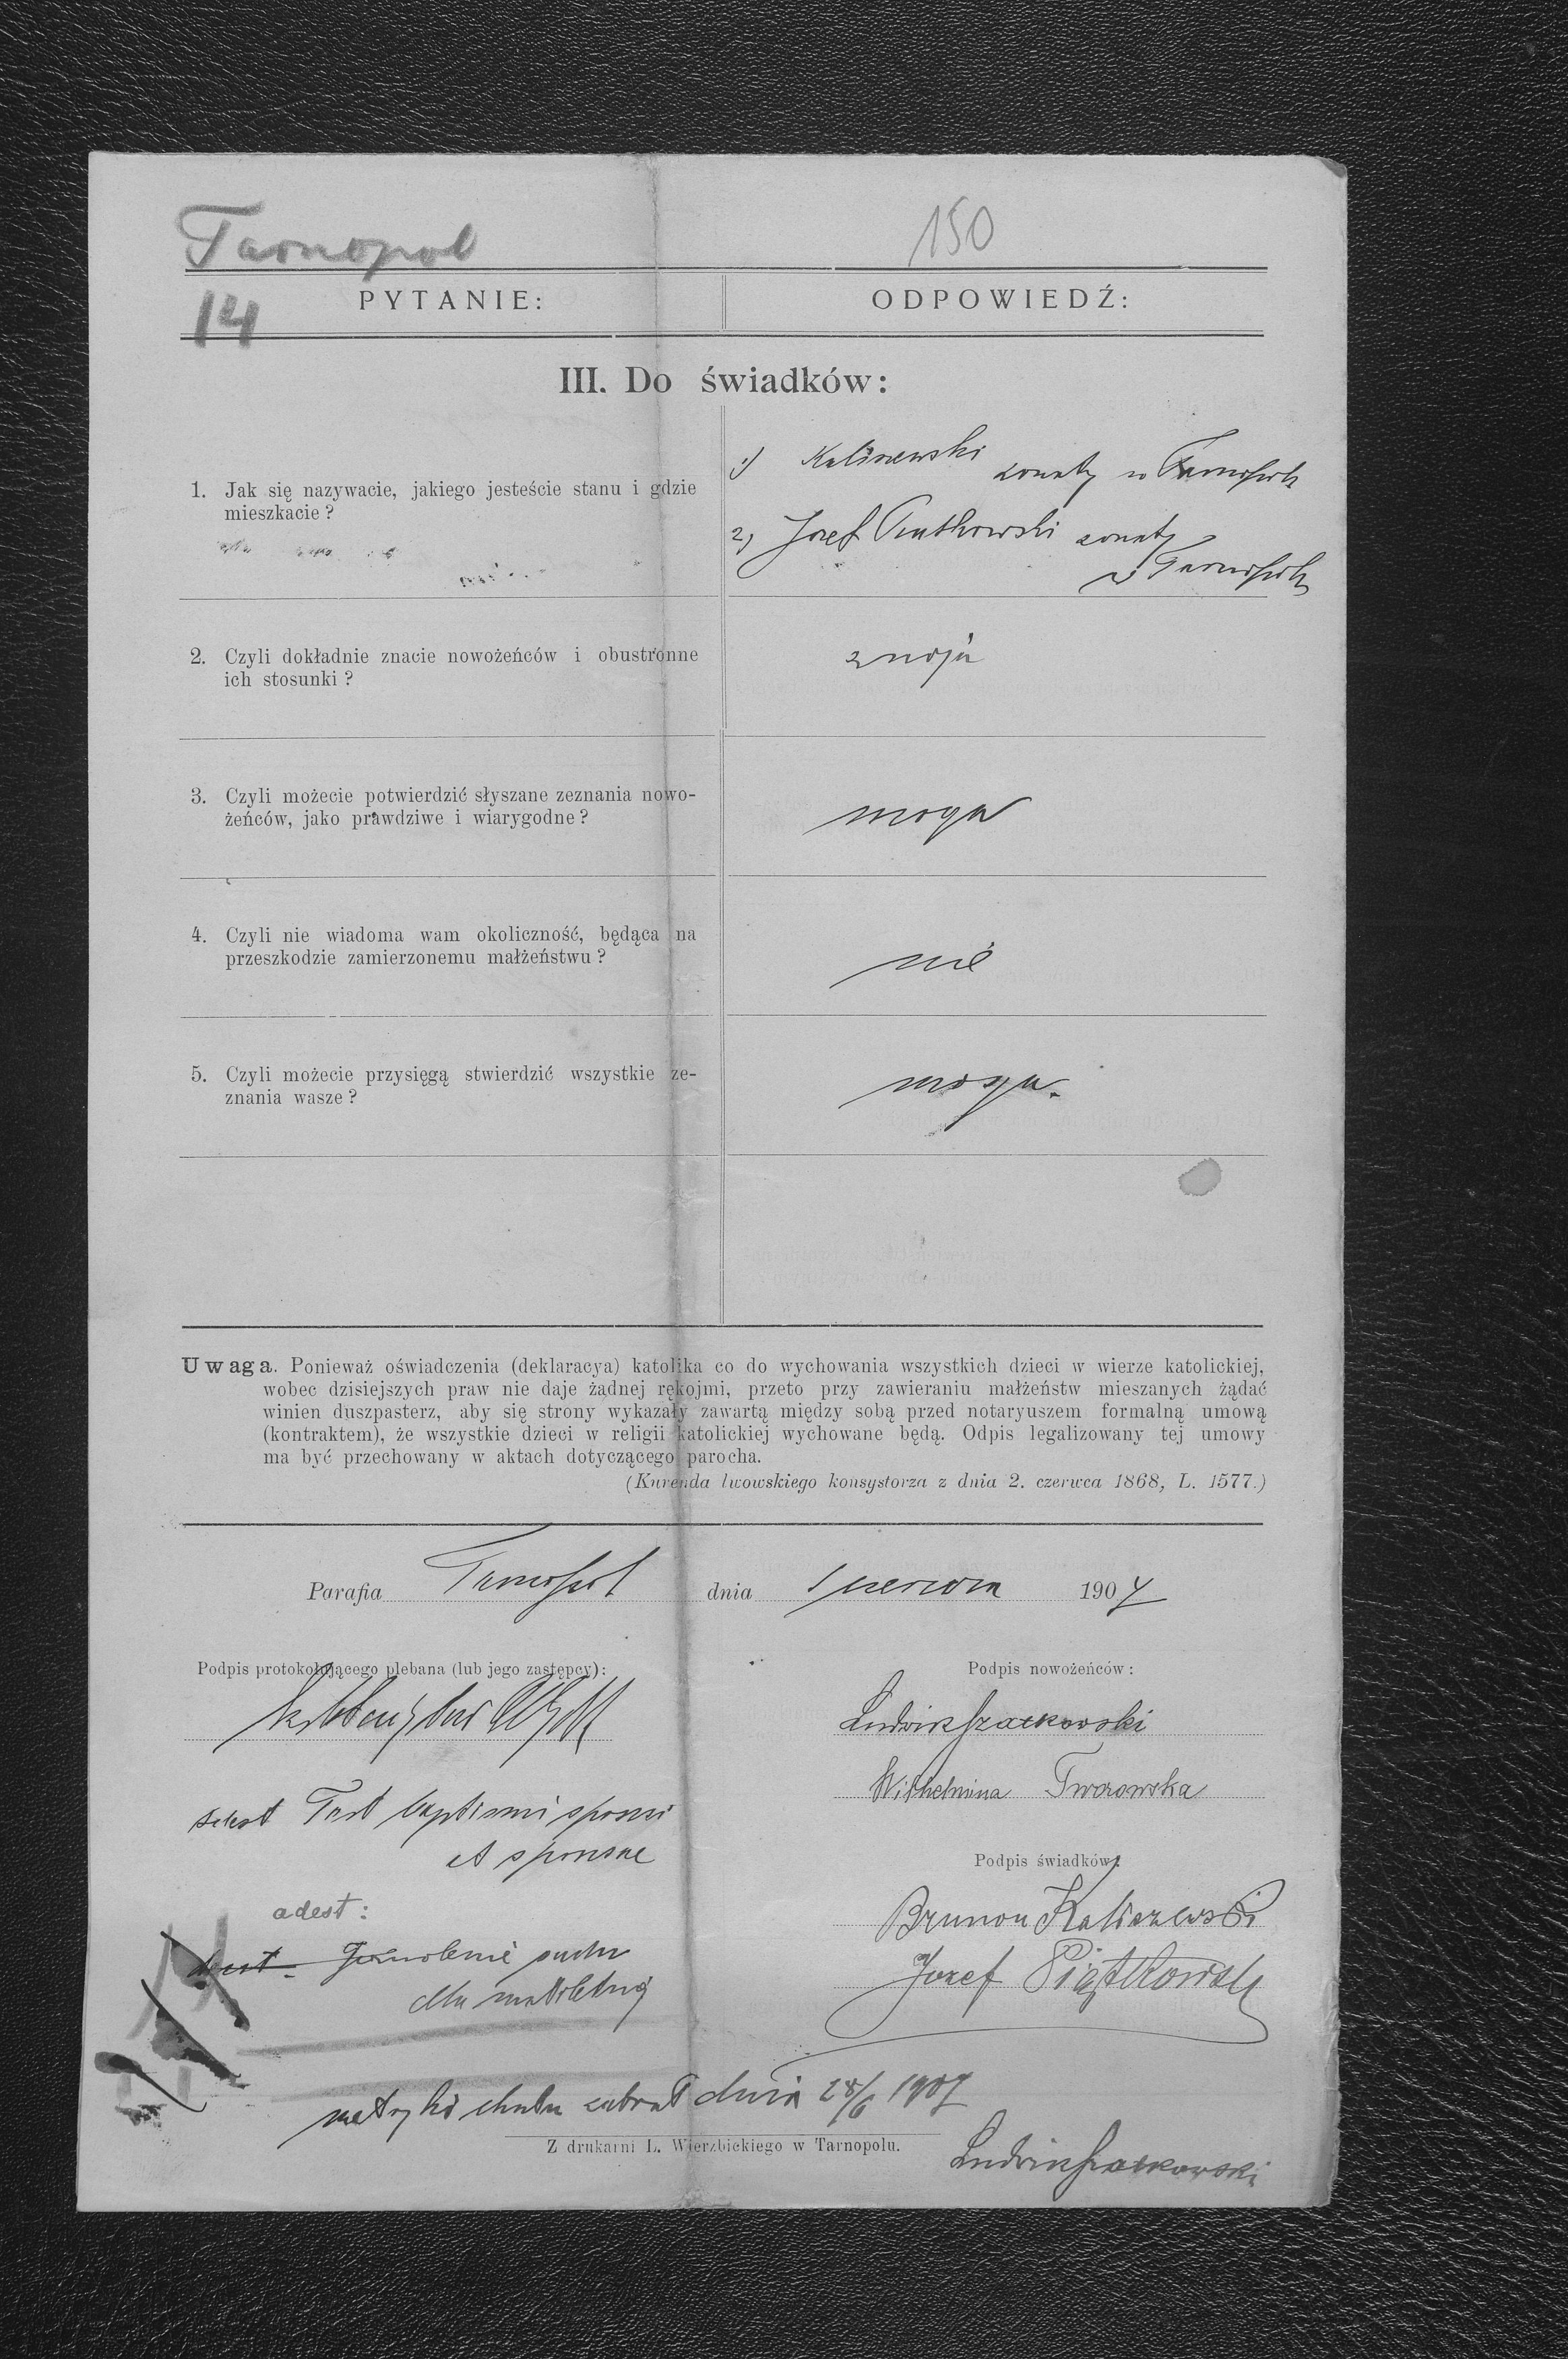 Tarnopol
150
14
PYTANIE:
ODPOWIEDŹ:
III. Do świadków:
1. Jak się nazywacie, jakiego jesteście stanu i gdzie
mieszkacie?
1) Kaliszewski żonaty w Tarnopolu
2) Józef Piątkowski żonaty
w Tarnopolu
2. Czyli dokładnie znacie nowożeńców i obustronne
ich stosunki?
znają
3. Czyli możecie potwierdzić słyszane zeznania nowo-
żeńców, jako prawdziwe i wiarygodne?
mogą
4. Czyli nie wiadoma wam okoliczność, będąca na
przeszkodzie zamierzonemu małżeństwu?
nie
5. Czyli możecie przysięgą stwierdzić wszystkie ze-
znania wasze?
mogą.
Uwaga. Ponieważ oświadczenia (deklaracya) katolika co do wychowania wszystkich dzieci w wierze katolickiej,
wobec dzisiejszych praw nie daje żadnej rękojmi, przeto przy zawieraniu małżeństw mieszanych żądać
winien duszpasterz, aby się strony wykazały zawartą między sobą przed notaryuszem formalną umową
(kontraktem), że wszystkie dzieci w religii katolickiej wychowane będą. Odpis legalizowany tej umowy
ma być przechowany w aktach dotyczącego parocha.
(Kurenda lwowskiego konsystorza z dnia 2. czerwca 1868, L. 1577.)
Parafia Tarnopol dnia 1 czerwca 1907
Podpis protokołującego plebana (lub jego zastępcy):
Podpis nowożeńców:
Ludwik Szackowski
Wilhelmina Tworowska
adest Test baptismi sponsi
et sponsae
Podpis świadków:
Brunon Kaliszewski
Józef Piątkowski
adest:
dla małoletniej
metryki chrztu zabrał dnia 28/6 1907
Z drukarni L. Wierzbickiego w Tarnopolu.
Ludwik Szackowski